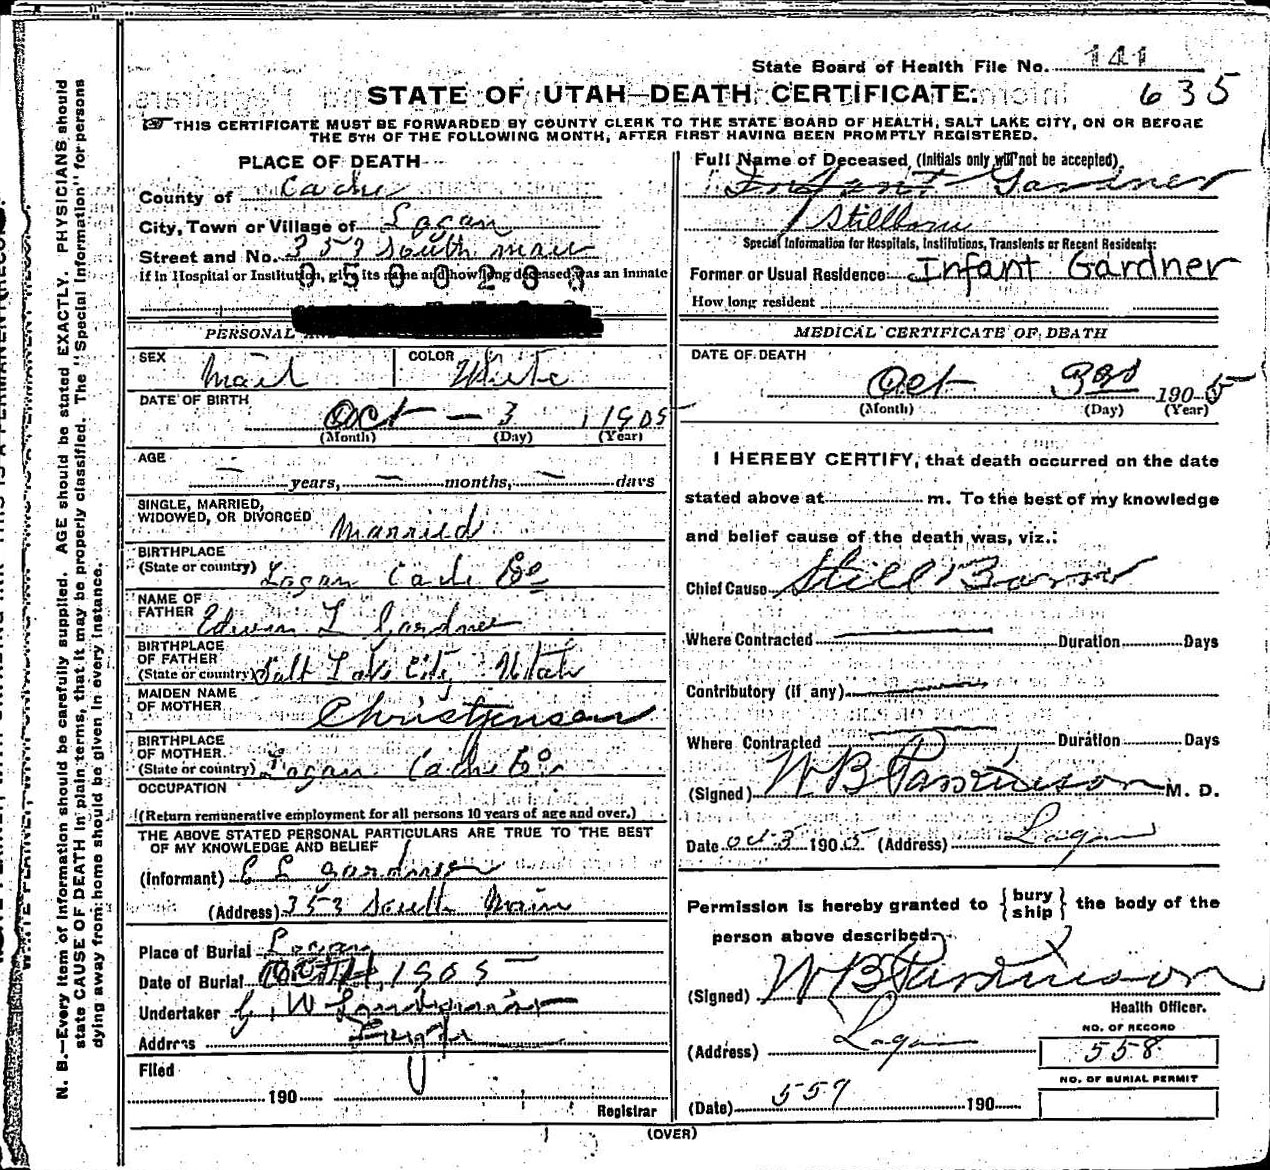 State Board of Health File No. 141
STATE OF UTAH—DEATH CERTIFICATE.
635
THIS CERTIFICATE MUST BE FORWARDED BY COUNTY CLERK TO THE STATE BOARD OF HEALTH, SALT LAKE CITY, ON OR BEFORE
THE 5TH OF THE FOLLOWING MONTH, AFTER FIRST HAVING BEEN PROMPTLY REGISTERED.
PLACE OF DEATH
County of Cache
City, Town or Village of Logan
Street and No. 353 South Main
if in Hospital or Institution, give its name and how long deceased was an Inmate
0500283
PERSONAL
SEX Mail COLOR White
DATE OF BIRTH
Oct — 3 1905
(Month) (Day) (Year)
AGE
— years, — months, — days
SINGLE, MARRIED,
WIDOWED, OR DIVORCED Married
BIRTHPLACE
(State or country) Logan Cache Co
NAME OF
FATHER Edwin L Gardner
BIRTHPLACE
OF FATHER
(State or country) Salt Lake City Utah
MAIDEN NAME
OF MOTHER Christjensen
BIRTHPLACE
OF MOTHER
(State or country) Logan Cache Co
OCCUPATION
(Return remunerative employment for all persons 10 years of age and over.)
THE ABOVE STATED PERSONAL PARTICULARS ARE TRUE TO THE BEST
OF MY KNOWLEDGE AND BELIEF
(Informant) E L Gardner
(Address) 353 South Main
Place of Burial Logan
Date of Burial Oct 4, 1905
Undertaker G. W.
Address
Filed
190
Registrar
Full Name of Deceased (Initials only will not be accepted)
Infant Gardner
Stillborn
Special Information for Hospitals, Institutions, Transients or Recent Residents:
Former or Usual Residence Infant Gardner
How long resident
MEDICAL CERTIFICATE OF DEATH
DATE OF DEATH
Oct 3rd 1905
(Month) (Day) (Year)
I HEREBY CERTIFY, that death occurred on the date
stated above at m. To the best of my knowledge
and belief cause of the death was, viz.:
Chief Cause Still Born
Where Contracted — Duration Days
Contributory (if any) —
Where Contracted — Duration Days
(Signed) W B Parkinson M. D.
Date Oct 3 1905 (Address) Logan
Permission is hereby granted to {bury ship} the body of the
person above described.
(Signed) W B Parkinson
Health Officer.
(Address) Logan
NO. OF RECORD
558
NO. OF BURIAL PERMIT
(Date) 557 190
(OVER)
N. B.—Every item of information should be carefully supplied. AGE should be stated EXACTLY. PHYSICIANS should
state CAUSE OF DEATH in plain terms, that it may be properly classified. The "Special Information" for persons
dying away from home should be given in every instance.